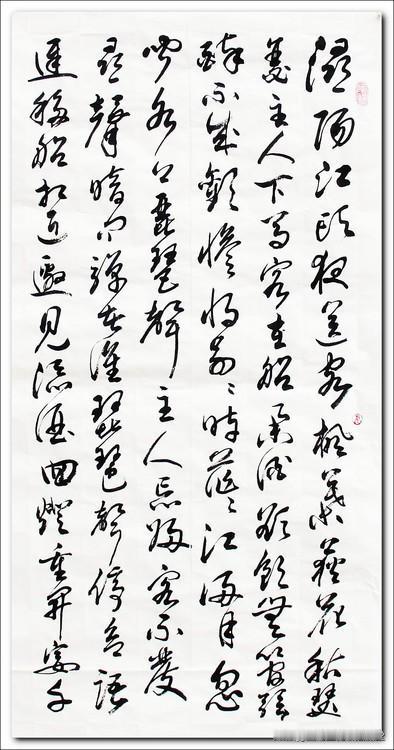 潯陽江頭夜送客楓葉荻花秋瑟
瑟主人下馬客在船舉酒欲飲無管絃
醉不成歡慘將別〻時茫〻江浸月忽
聞水上琵琶聲主人忘歸客不發
尋聲暗問彈者誰琵琶聲停欲語
遲移船相近邀見添酒回燈重開宴千